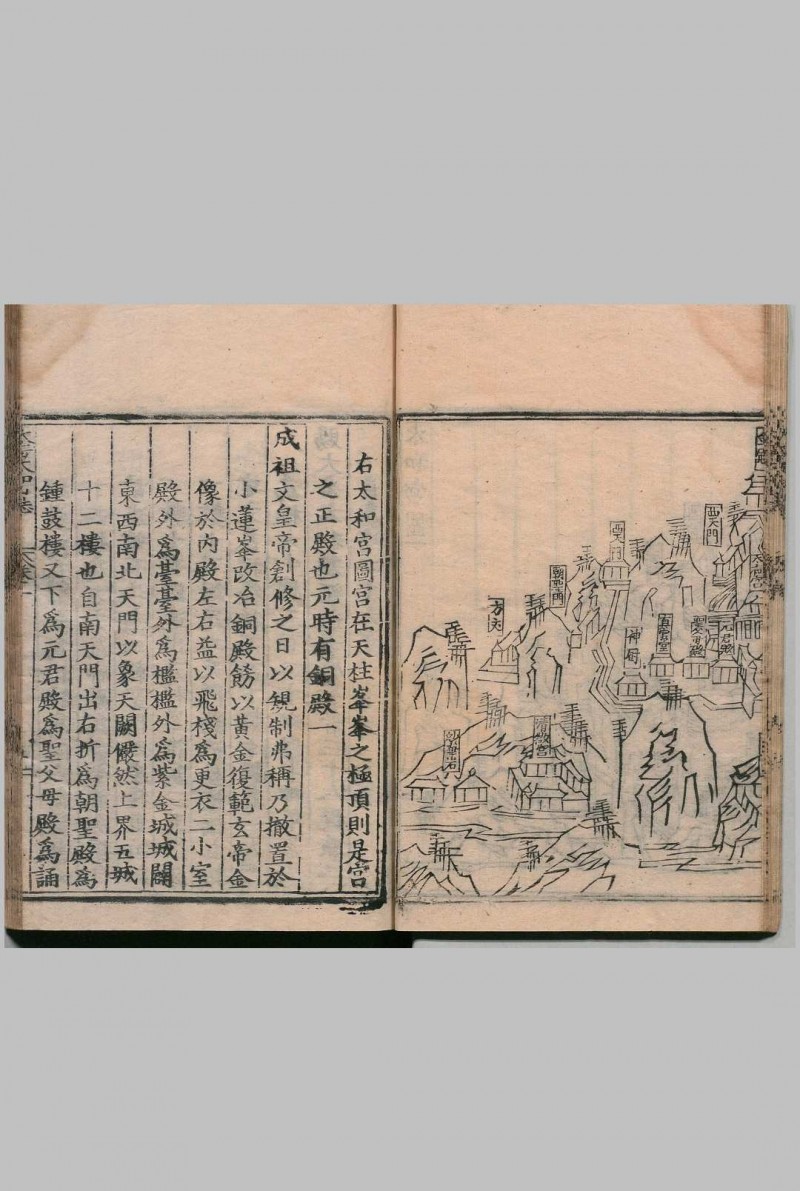 西天門
西天門
朝聖門
方丈
神廚
元君殿
右太和宮圖宮在天柱峯峯之極頂則是宮
之正殿也元時有銅殿一
成祖文皇帝創修之日以䂓制弗稱乃撤置於
小蓮峯改冶銅殿餙以黃金復範玄帝金
像於內殿左右益以飛棧爲更衣二小室
殿外爲臺臺外爲檻檻外爲紫金城城闢
東西南北天門以象天闕儼然上界五城
十二樓也自南天門出右折爲朝聖殿爲
鍾鼓樓又下爲元君殿爲聖父母殿爲誦